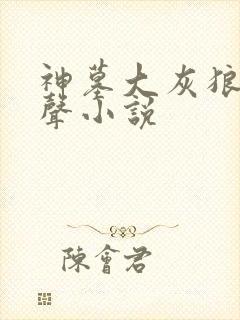 神墓大灰狼
聲小說
陳會君